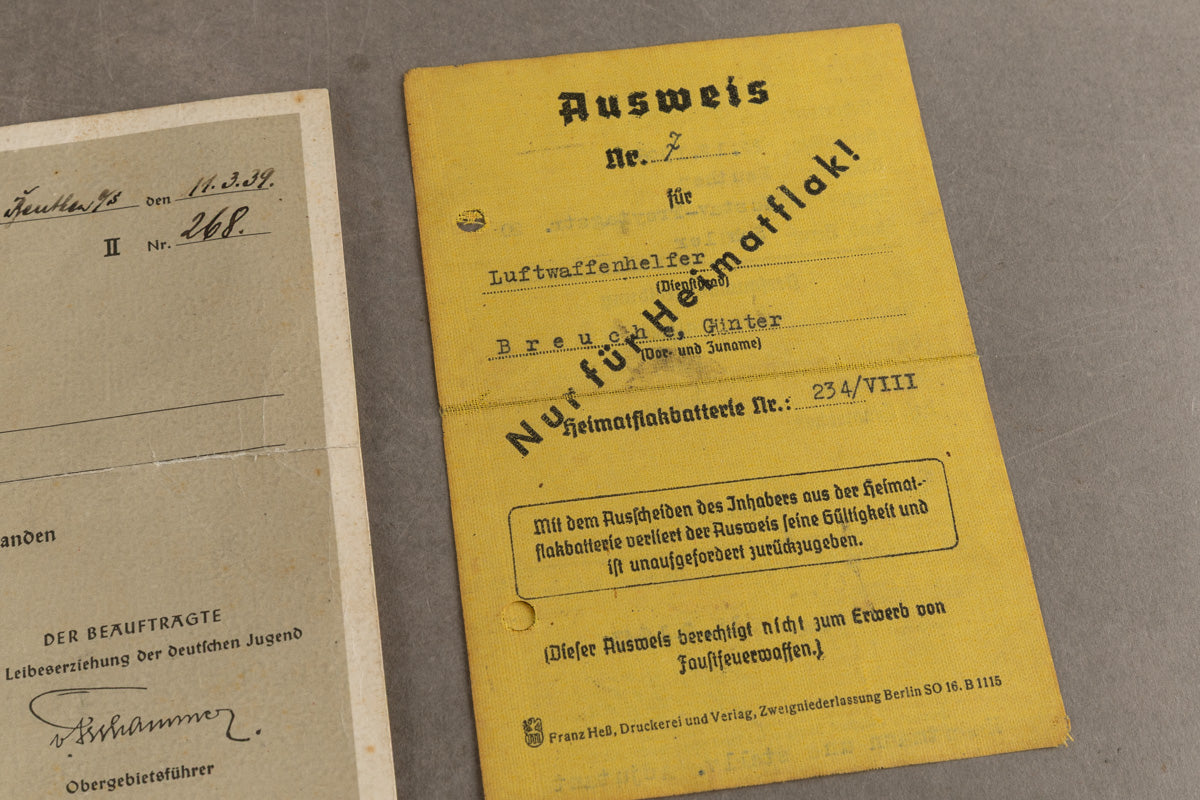 Beuthen O/S den 11. 3. 39.
II Nr. 268.
anden
DER BEAUFTRAGTE
Leibeserziehung der deutschen Jugend
v. Tschammer
Obergebietsführer
Ausweis
Nr. 7
für
Luftwaffenhelfer
(Dienstgrad)
Breuche, Günter
(Vor- und Zuname)
Heimatflakbatterie Nr.: 234/VIII
Nur für Heimatflak!
Mit dem Ausscheiden des Inhabers aus der Heimat-
flakbatterie verliert der Ausweis seine Gültigkeit und
ist unaufgefordert zurückzugeben.
(Dieser Ausweis berechtigt nicht zum Erwerb von
Faustfeuerwaffen.)
Franz Heß, Druckerei und Verlag, Zweigniederlassung Berlin SO 16. B 1115